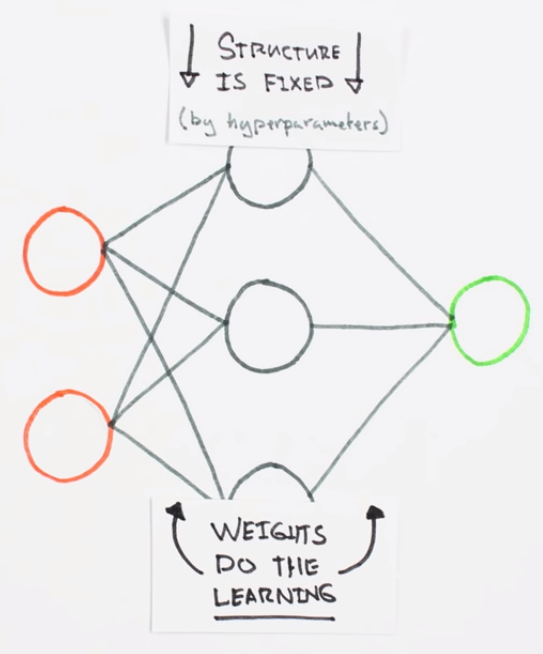 STRUCTURE
IS FIXED
(by hyperparameters)
WEIGHTS
DO THE
LEARNING